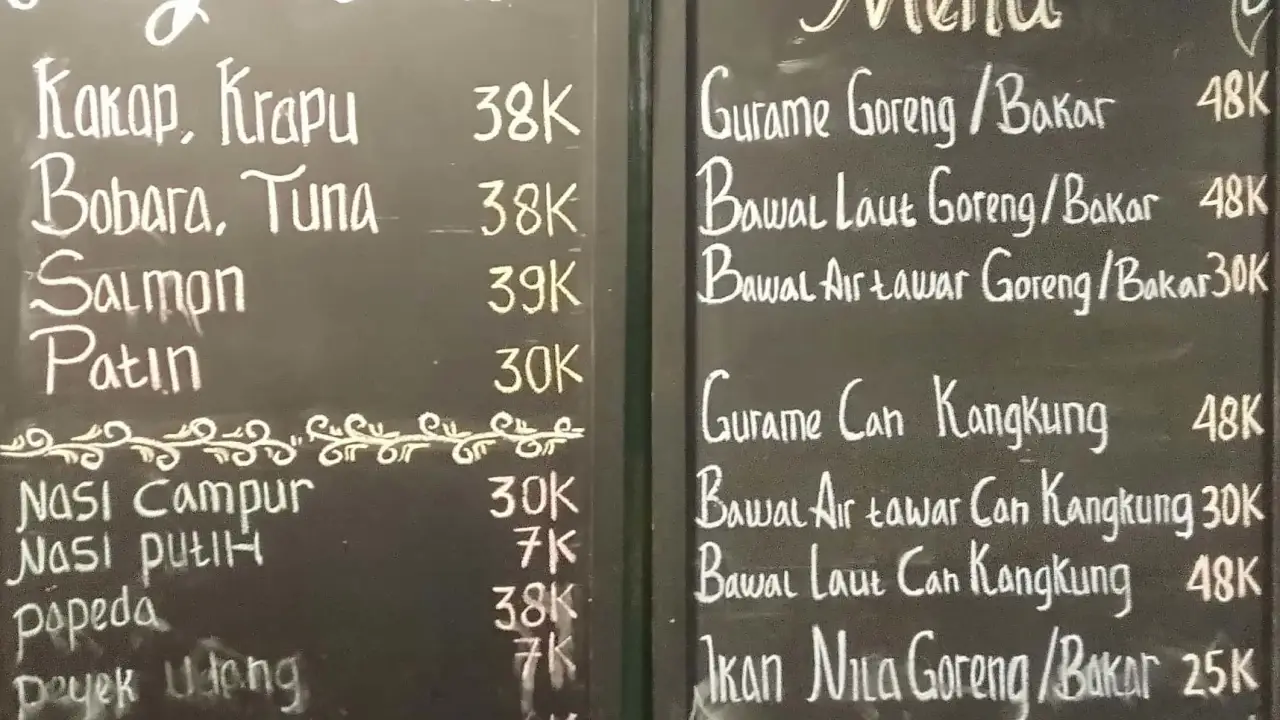 Kakap, Krapu 38K
Bobara, Tuna 38K
Salmon 39K
Patin 30K
Nasi Campur 30K
Nasi Putih 7K
Papeda 38K
Peyek Udang 7K
Menu
Gurame Goreng / Bakar 48K
Bawal Laut Goreng / Bakar 48K
Bawal Air tawar Goreng / Bakar 30K
Gurame Can Kangkung 48K
Bawal Air tawar Can Kangkung 30K
Bawal Laut Can Kangkung 48K
Ikan Nila Goreng / Bakar 25K